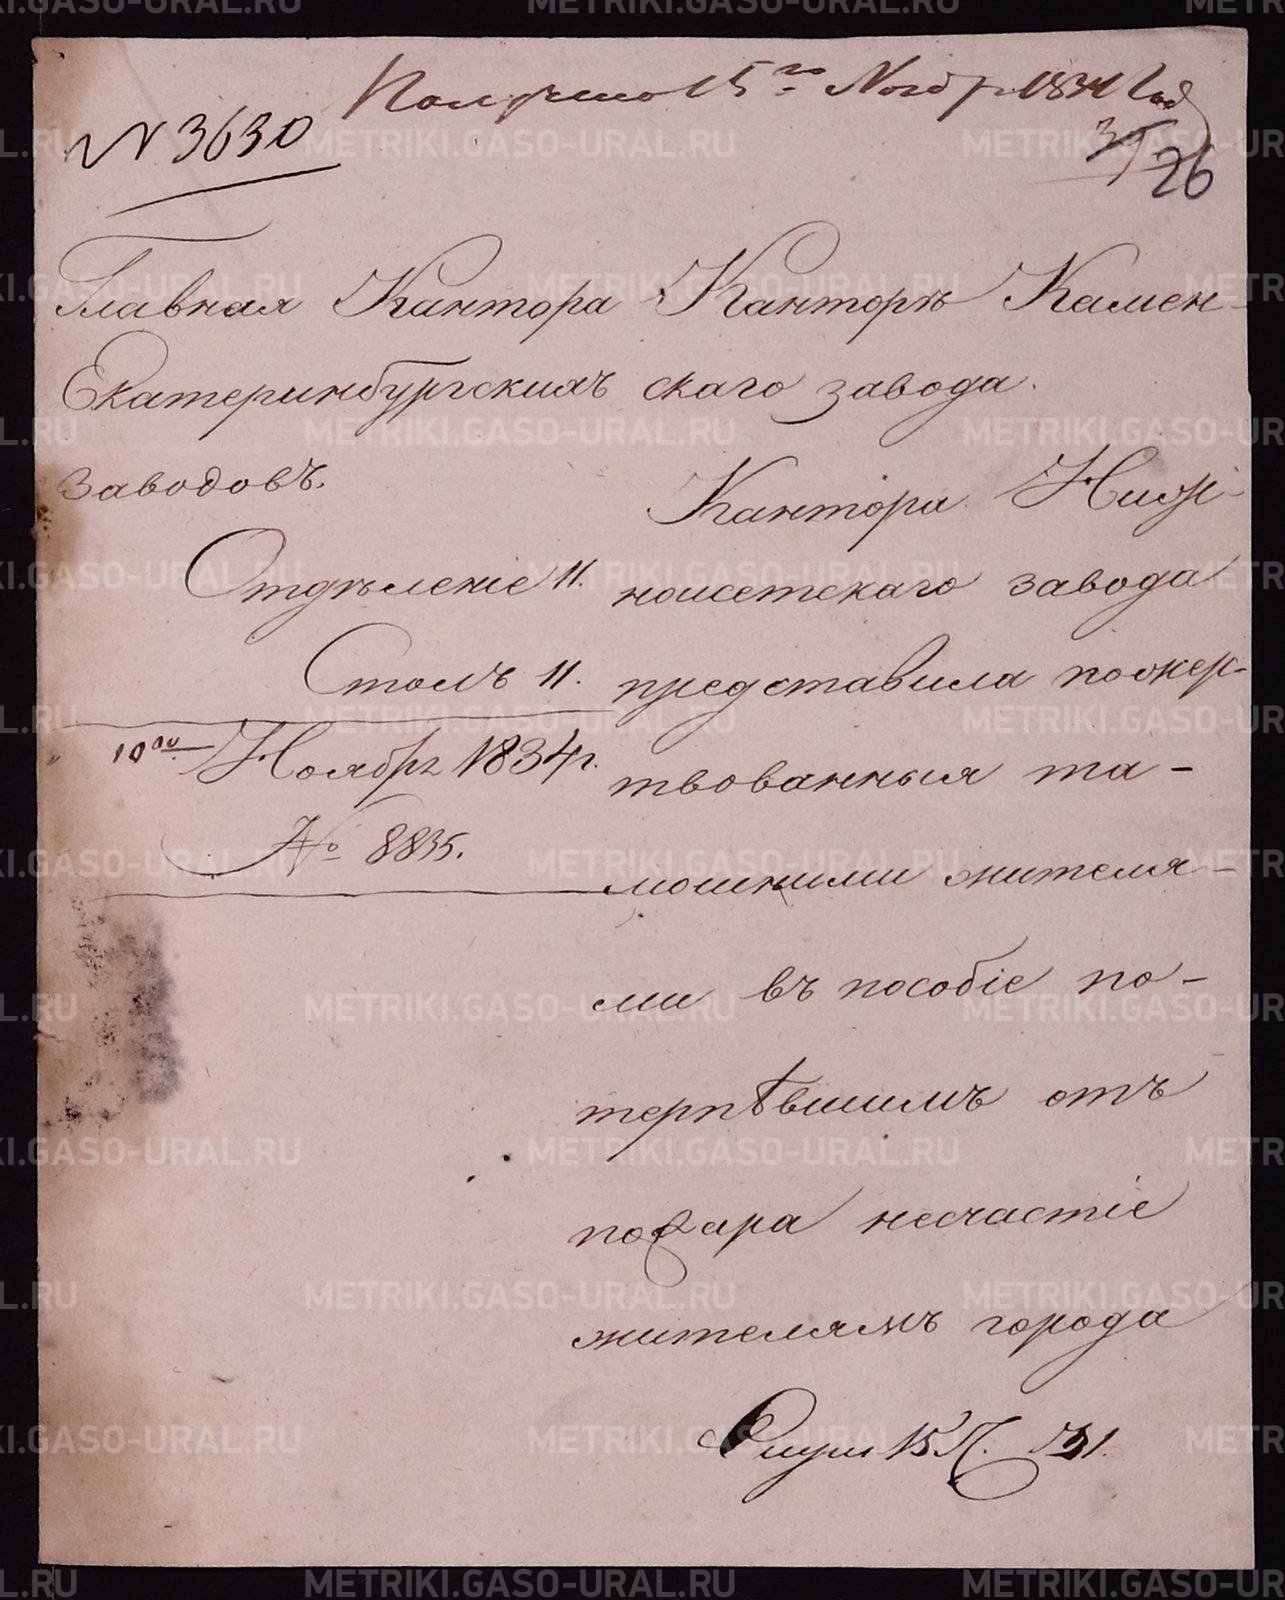 Получено 15го Ноябр 1834 Года
N 3630
26
Главная Кантора
Екатеринбургскихъ
заводовъ.
Отдѣленіе II.
Столъ II.
10го Ноября 1834 г.
№ 8835.
Канторѣ Камен-
скаго завода.
Кантора Ниж-
ноисетскаго завода
представила пожер-
твованныя та-
мошними жителя-
ми въ пособіе по-
терпѣвшимъ отъ
пожара несчастіе
жителямъ города